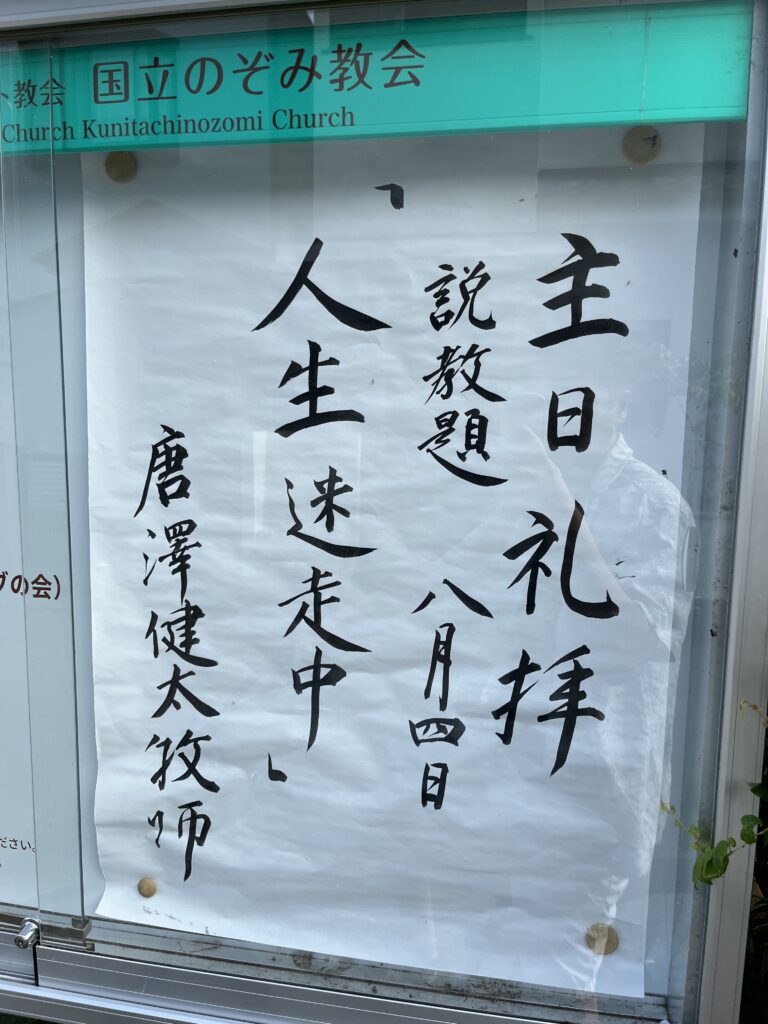 ト教会 国立のぞみ教会
Church Kunitachinozomi Church
主日礼拝
説教題 八月四日
「人生迷走中」
唐澤健太牧師
グの会)
ださい。